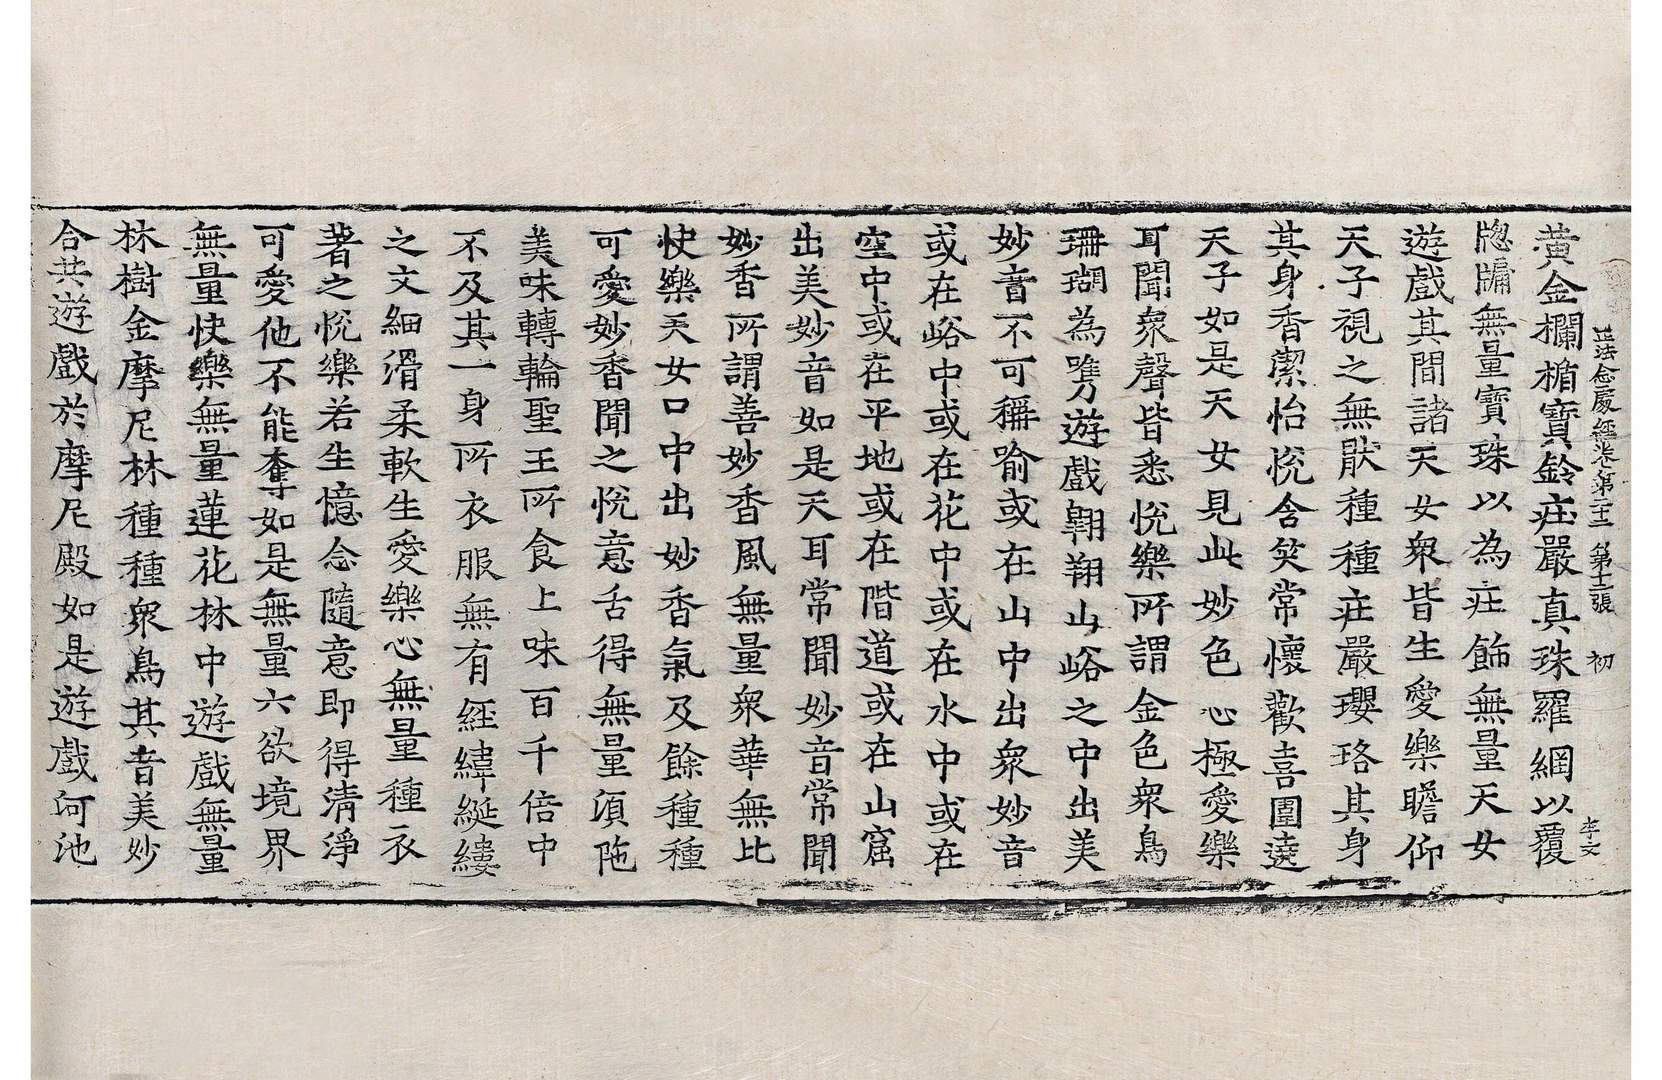 正法念處經卷第二十三 第十二張 初
李文
黃金欄楯寶鈴庄嚴真珠羅網以覆
牎牖無量寶珠以為庄飾無量天女
遊戲其間諸天女衆皆生愛樂瞻仰
天子視之無猒種種庄嚴瓔珞其身
其身香潔怡悅含笑常懷歡喜圍遶
天子如是天女見此妙色心極愛樂
耳聞衆聲皆悉悅樂所謂金色衆鳥
珊瑚為㭰遊戲翺翔山峪之中出美
妙音不可稱喻或在山中出衆妙音
或在峪中或在花中或在水中或在
空中或在平地或在階道或在山窟
出美妙音如是天耳常聞妙音常聞
妙香所謂善妙香風無量衆華無比
快樂天女口中出妙香氣及餘種種
可愛妙香聞之悅意舌得無量湏陁
美味轉輪聖王所食上味百千倍中
不及其一身所衣服無有經緯綖縷
之文細滑柔軟生愛樂心無量種衣
著之悅樂若生憶念隨意即得清淨
可愛他不能奪如是無量六欲境界
無量快樂無量蓮花林中遊戲無量
林樹金摩尼林種種衆鳥其音美妙
合共遊戲於摩尼殿如是遊戲河池